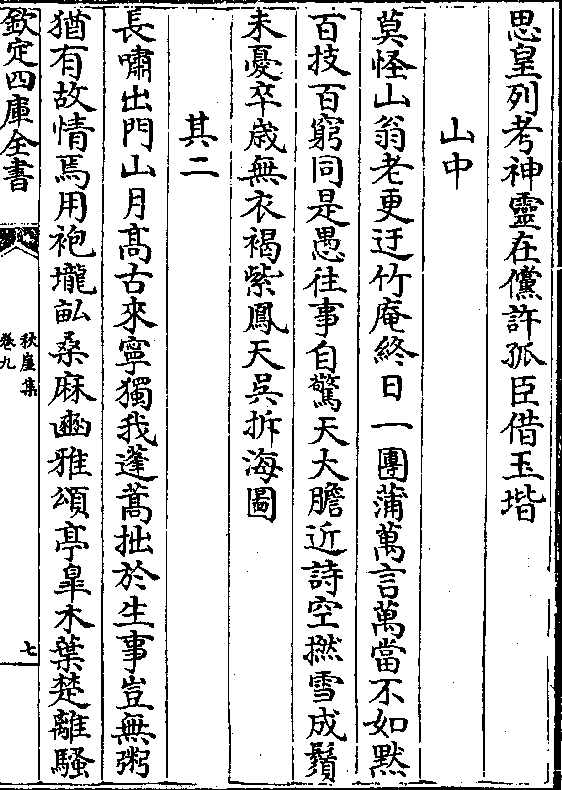 思皇列考神靈在儻許孤臣借玉堦
山中
莫怪山翁老更迂竹庵終日一團蒲萬言萬當不如黙
百技百窮同是愚往事自驚天大膽近詩空撚雪成鬚
未憂卒歳無衣褐紫鳳天吳拆海圖
其二
長嘯出門山月髙古來寧獨我蓬蒿拙於生事豈無粥
猶有故情焉用袍壠畆桑麻豳雅頌亭臯木葉楚離騷
欽定四庫全書
秋崖集
卷九
七